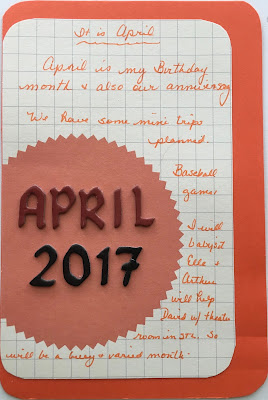 It is April
April is my Birthday
month & also our anniversary
We have some mini trips
planned.
Baseball
games
APRIL
2017
I will
babysit
Elle &
Arthur
will help
David w/ theatre
room in STL. So
will be a busy & varied month.